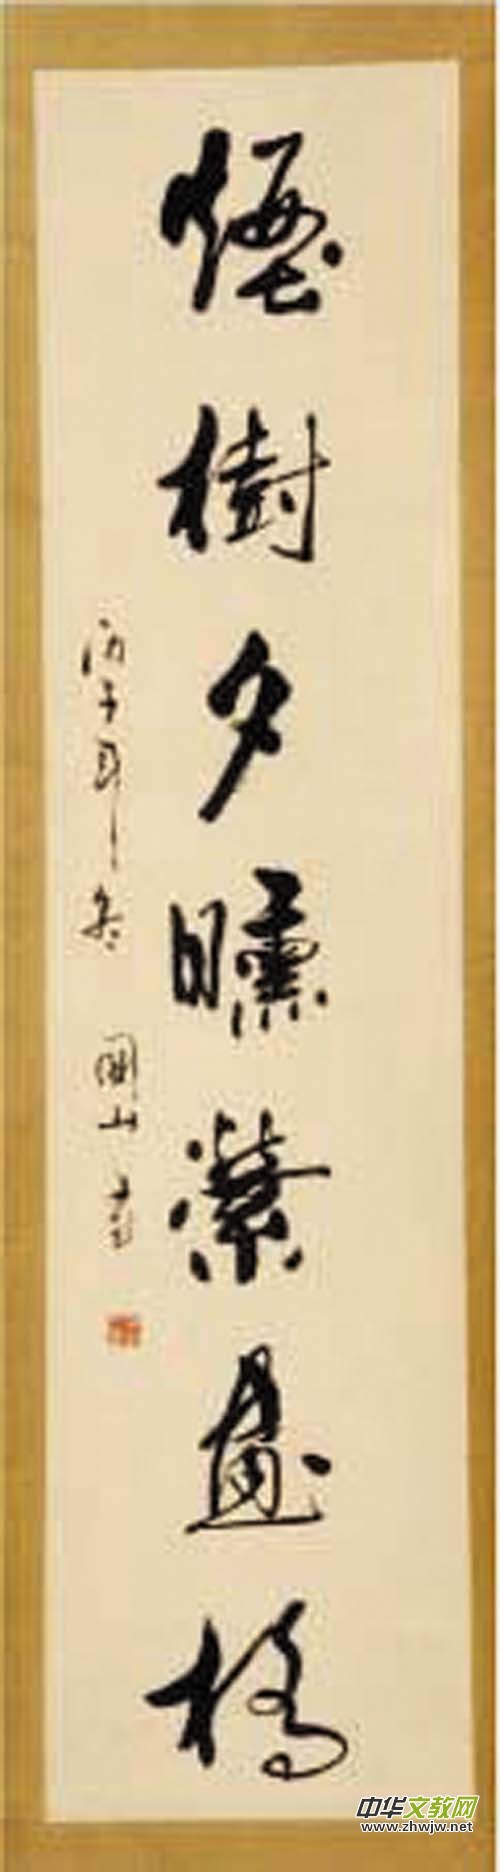 煙樹夕曛縈畫橋
丙子年冬 關山書
中华文教网
www.zhwjw.net